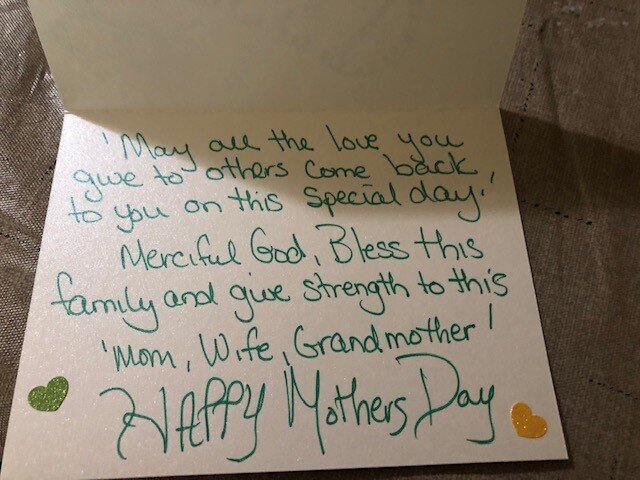 'May all the love you
give to others come back
to you on this special day.'
Merciful God, Bless this
family and give strength to this
'Mom, Wife, Grandmother'
HAPPY Mothers Day